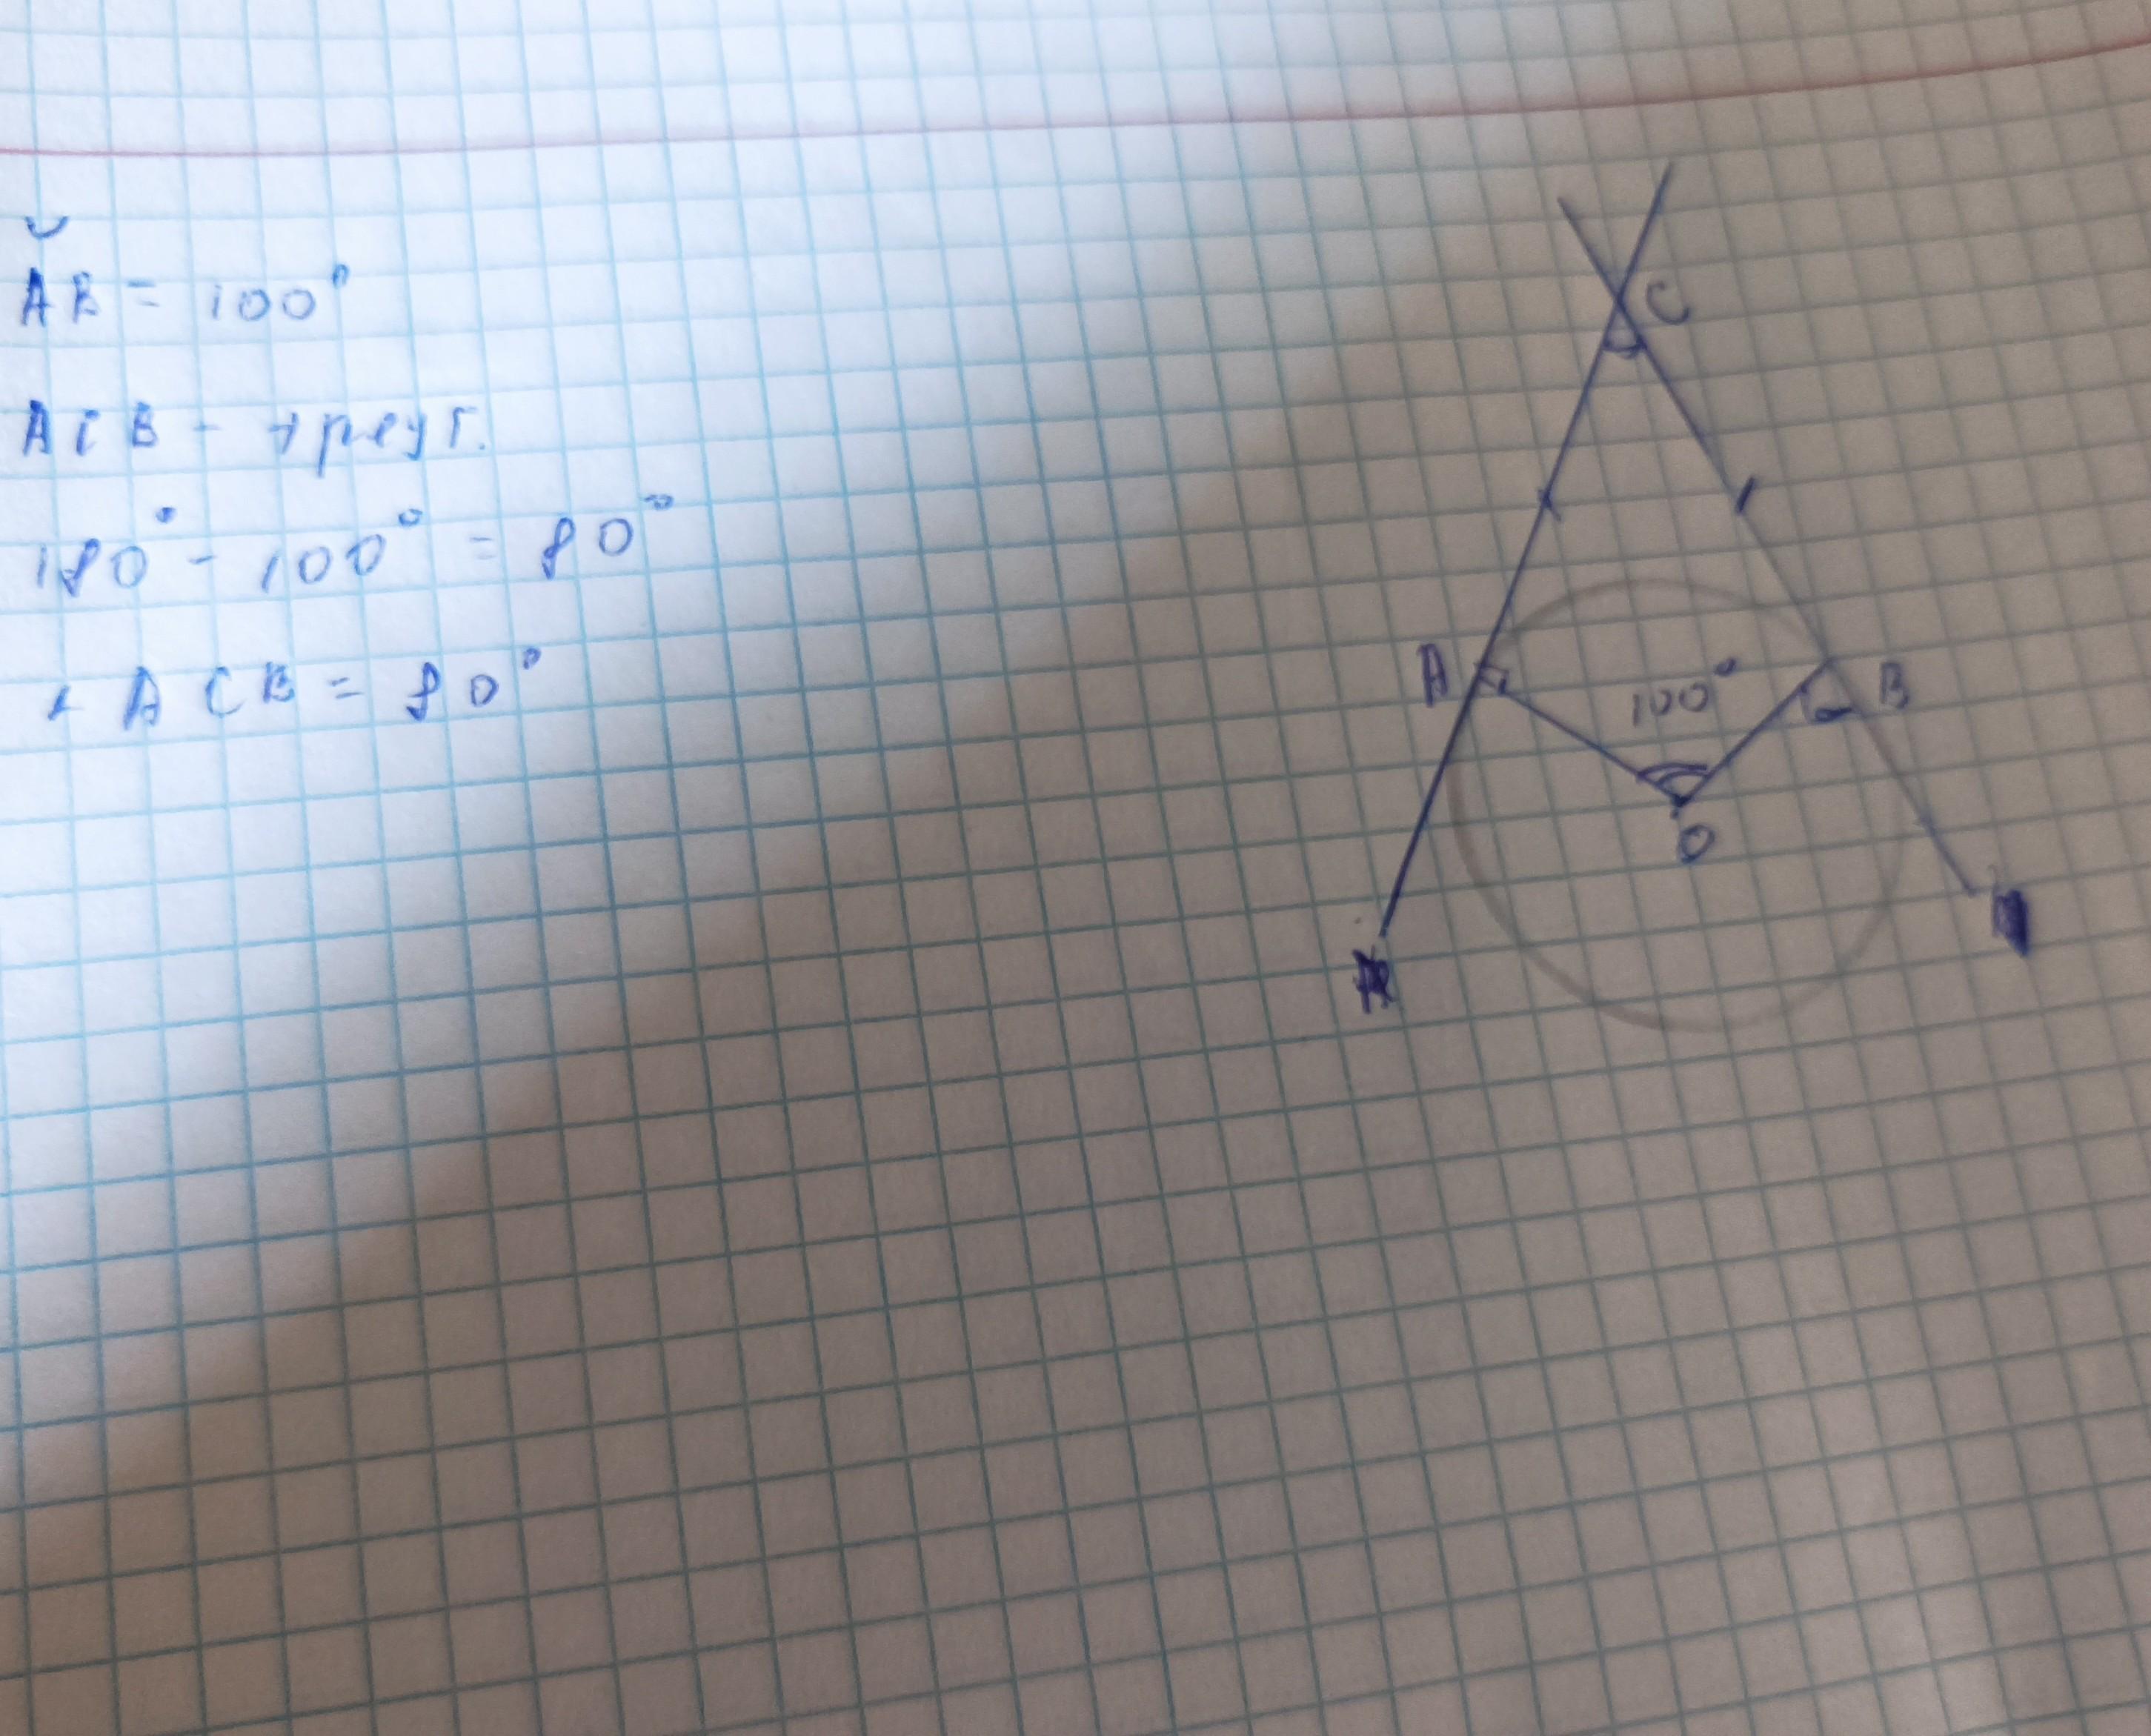 ◡
AB = 100°
ACB - треуг.
180° - 100° = 80°
∠ ACB = 80°
C
A
100°
B
O